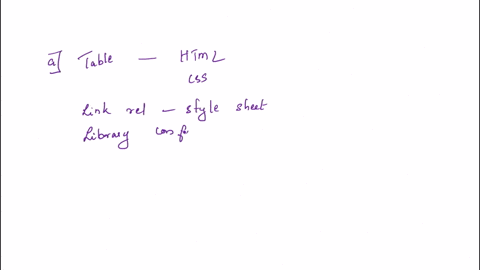 a] Table — HTML
css
Link rel — style sheet
Library